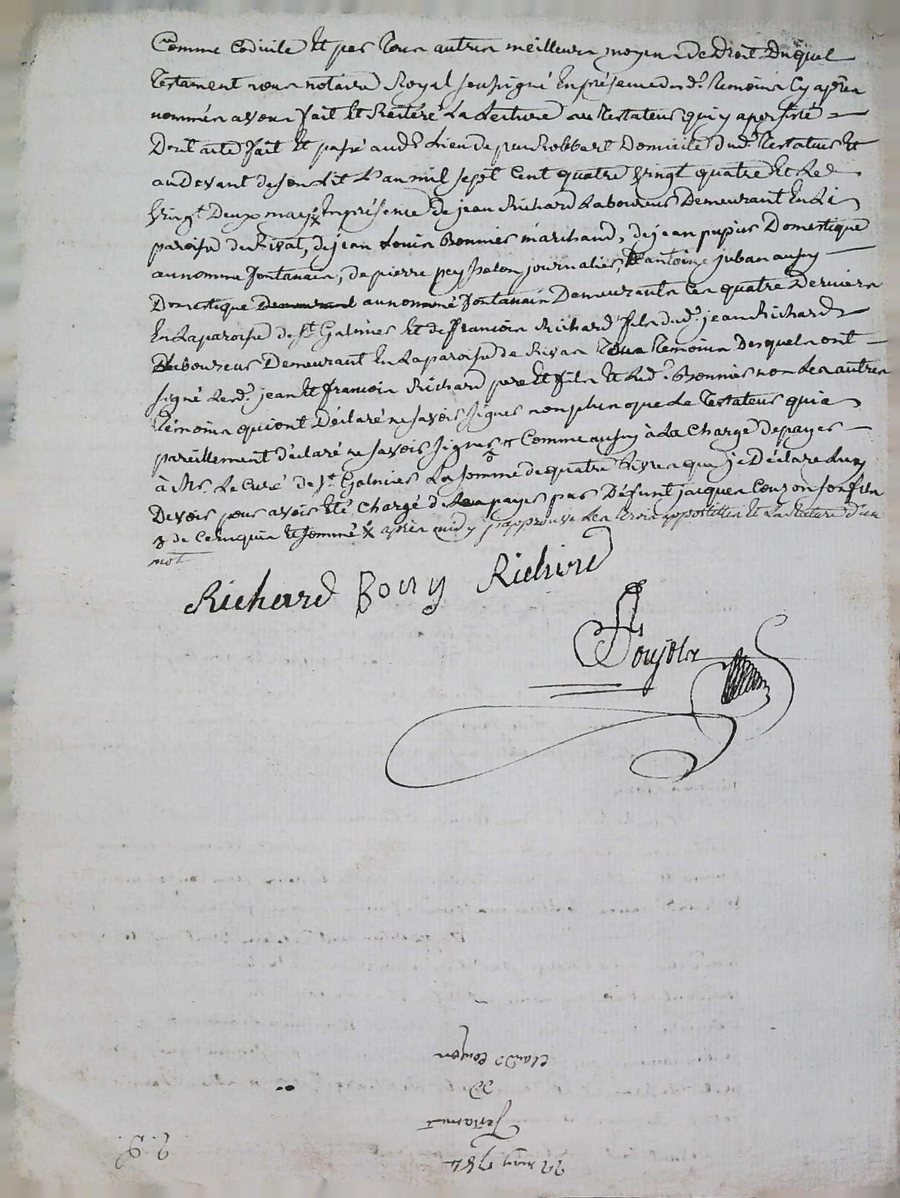 Comme Codicile Et par Tous autres meilleurs moyens de Droit Duquel
Testament nous notaire Royal soussigné En présence des d. Temoins Cy après
nommés avons fait Et Reiteré La Lecture au Testateur qui y a persisté
Dont acte fait Et passé aud. Lieu de Domicile dud. Testateur Et
au devant de son Lit L'an mil sept Cent quatre vingt quatre Et Le
vingt Deux may x En présence de jean Richard Laboureur Demeurant En La
paroisse de Rivas, de jean Louis Bonnier marchand, de jean pupier Domestique
au nommé fontanain, de pierre peysselon journalier, Et antoine juban aussy
Domestique au nommé fontanain Demeurants Ces quatre Derniers
En La paroisse de St. Galmier Et de francois Richard fils dud. jean Richard
Laboureur Demeurant En La paroisse de Rivas Tous Temoins Desquels ont
signé Lesd. jean Et francois Richard pere Et fils Et Led. Bonnier non Les autres
Témoins qui ont Déclaré ne savoir signer non plus que Le Testateur qui a
pareillement déclaré ne savoir signer Comme aussy à La Charge de payer
à Mr. Le Curé de St. Galmier La somme de quatre Livres que je Déclare Luy
Devoir pour avoir été Chargé de Les payer par Défunt jacques Couzon son fils
de Ce requis Et sommé x après midy j'approuve Les trois apostilles Et La Rature d'un
mot
Richard Bony Richard
Poujols
22 may 1784
Testament
de
Claude Couzon